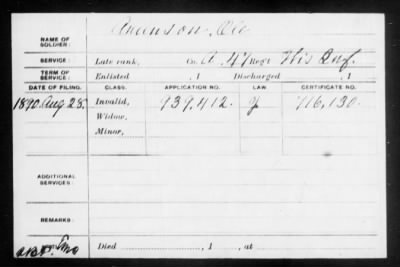 NAME OF SOLDIER: Ole
SERVICE: Late rank, Co. A. 47 Regt Wis Inf.
TERM OF SERVICE: Enlisted , 1 Discharged , 1
DATE OF FILING. CLASS. APPLICATION NO. LAW. CERTIFICATE NO.
1890 Aug 28. Invalid, 939,412 716,130
Widow,
Minor,
ADDITIONAL SERVICES:
REMARKS:
Died , 1 , at